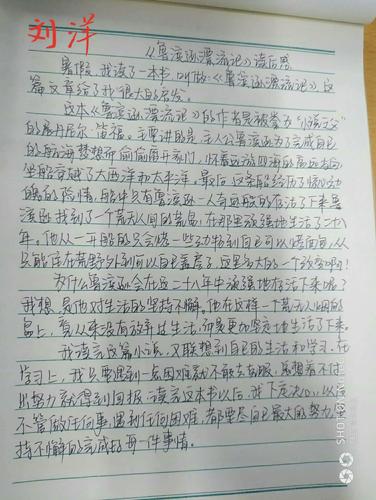 刘洋
《鲁滨逊漂流记》读后感
暑假,我读了一本书,叫做《鲁滨逊漂流记》这
篇文章给了我很大的启发。
这本《鲁滨逊漂流记》的作者是被誉为"小说之父"
的展丹尼尔·笛福。主要讲的是,主人公鲁滨逊为了完成自己
的航海梦想而偷偷离开家门,
坐船穿越了大西洋和太平洋。最后,这条船经历了惊心动
魄的险情,船中只有鲁滨逊一人奇迹般的存活了下来鲁
滨逊找到了一个荒无人间的荒岛,在那里顽强地生活了二十八
年。他从一开始的只会做一些到自己可以烤面包,从
只能住在荒野外到可以自己盖房子,这是多大的一个改变啊!
为什么鲁滨逊会在这二十八年中顽强地存活下来呢?
我想,是他对生活的坚持不懈。他在这样一个荒无人烟的
岛上,看从来没有放弃过生活,而是更加坚定地生活了下来。
我读完这篇小说,又联想到自己的生活和学习。在
学习上,我只要遇到一点困难就不敢去克服,总想着不付
出努力就得到回报。读完这本书以后,我下定决心,以后
不管做任何事,遇到任何困难,都要尽自己最大的努力,坚
持不懈的完成好每一件事情。
SHOT ON